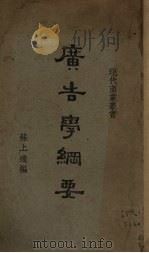 現代商業叢書
廣告學綱要
蘇上達編